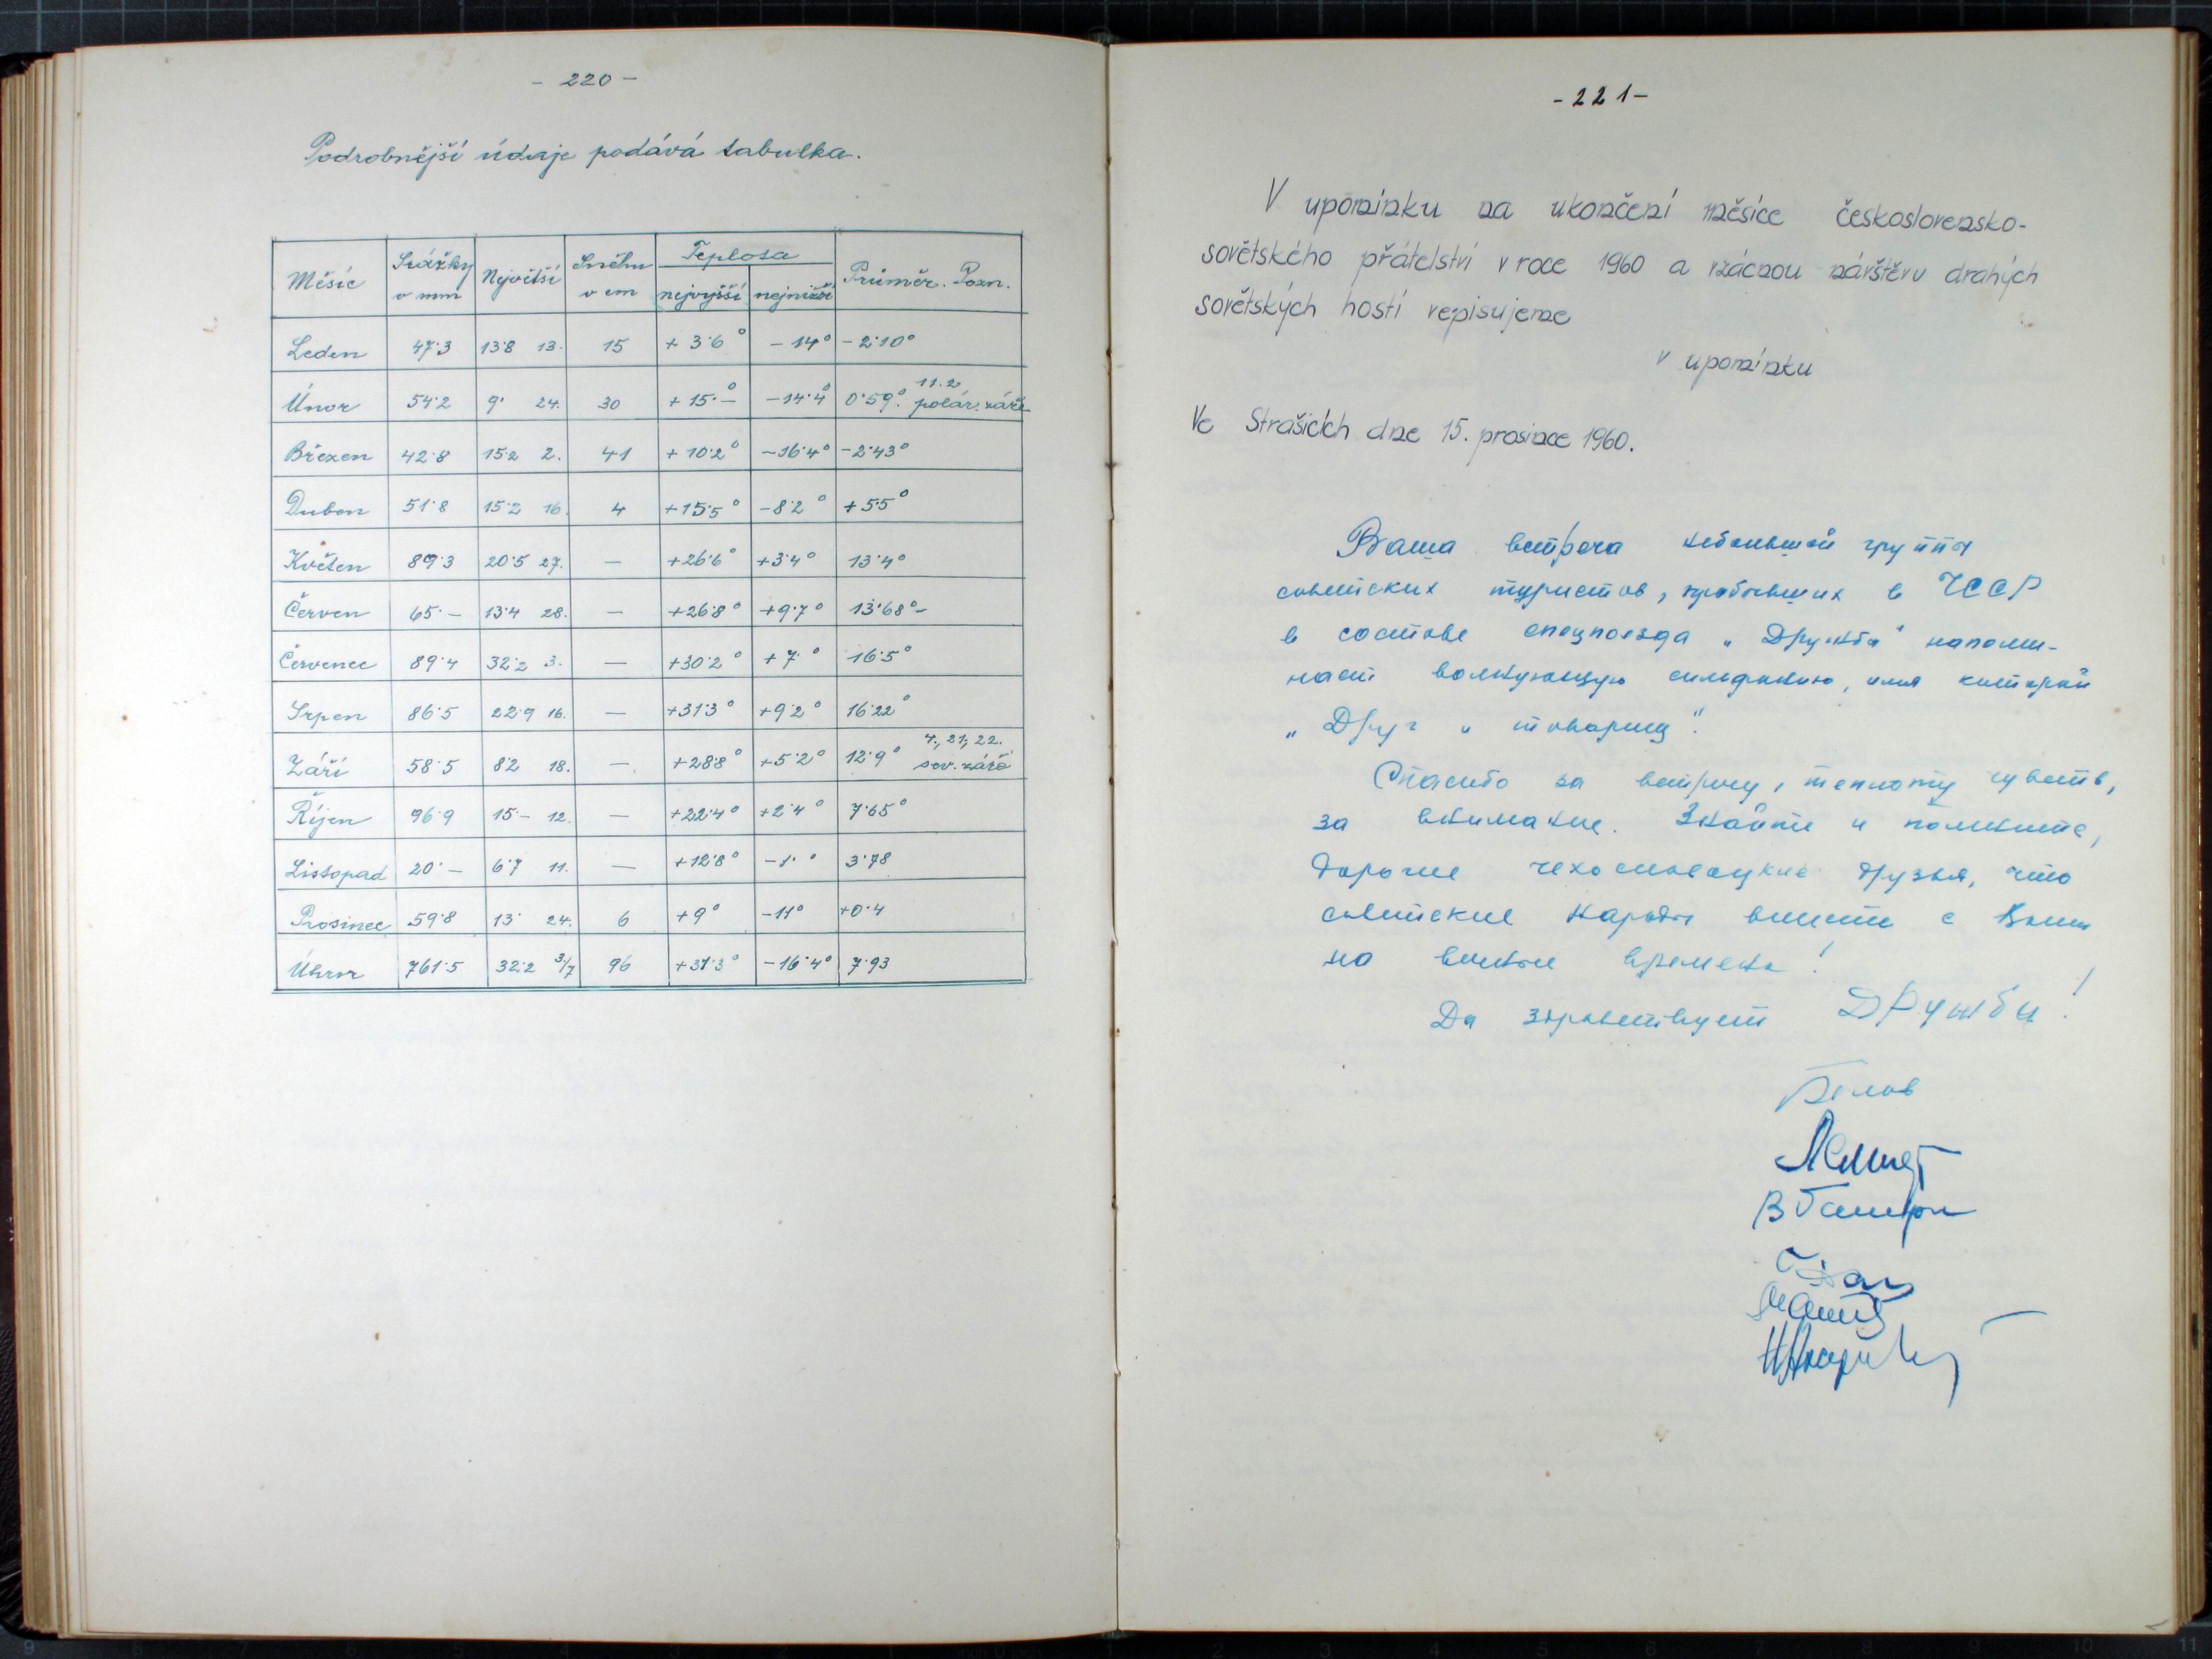 - 220 -
Podrobnější údaje podává tabulka.
Měsíc Srážky v mm Největší Sněhu v cm Teplota nejvyšší nejnižší Průměr. Pozn.
Leden 47·3 13·8 13. 15 + 3·6° - 14° - 2·10°
Únor 54·2 9· 24. 30 + 15·-° - 14·4° 0·59°. 11.2. polár. záře
Březen 42·8 15·2 2. 41 + 10·2° - 16·4° - 2·43°
Duben 51·8 15·2 16. 4 + 15·5° - 8·2° + 5·5°
Květen 89·3 20·5 27. — + 26·6° + 3·4° 13·4°
Červen 65·- 13·4 28. — + 26·8° + 9·7° 13·68°-
Červenec 89·4 32·2 3. — + 30·2° + 7·° 16·5°
Srpen 86·5 22·9 16. — + 31·3° + 9·2° 16·22°
Září 58·5 8·2 18. — + 28·8° + 5·2° 12·9° 4., 21., 22. sev. záře
Říjen 96·9 15·- 12. — + 22·4° + 2·4° 7·65°
Listopad 20·- 6·7 11. — + 12·8° - 1·° 3·78
Prosinec 59·8 13· 24. 6 + 9° - 11° + 0·4
Úhrn 761·5 32·2 3/7 96 + 31·3° - 16·4° 7·93
- 221 -
V upomínku na ukončení měsíce československo-
sovětského přátelství v roce 1960 a vzácnou návštěvu drahých
sovětských hostí vepisujeme
v upomínku
Ve Strašicích dne 15. prosince 1960.
Ваша встреча небольшой группы
советских туристов, прибывших в ЧССР
в составе спецпоезда „Дружба" напоми-
нает волнующую симфонию, имя которой
„Друг и товарищ".
Спасибо за встречу, теплоту чувств,
за внимание. Знайте и помните,
дорогие чехословацкие друзья, что
советские народы вместе с Вами
на вечные времена!
Да здравствует Дружба!
Белов